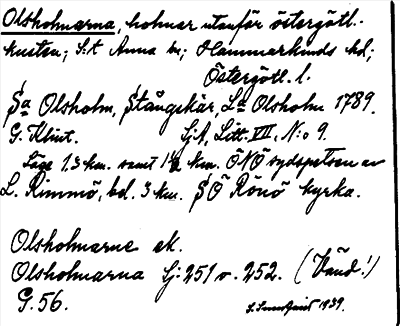 Olsholmarna, holmar utanför östergötl.-
kusten; S:t Anna sn; Hammarkinds hd;
Östergötl. l.
Sa Olsholm, Stångskär, La Olsholm 1789.
G. Klint. Sjk, Litt. VII, N:o 9.
Läge 1,3 km. samt 1½ km. ÖNÖ sydspetsen av
L. Rimmö, bel. 3 km. SÖ Rönö kyrka.
Olsholmarne ek.
Olsholmarna Sj: 251 v. 252. (Vänd!)
G. 56. 1939.